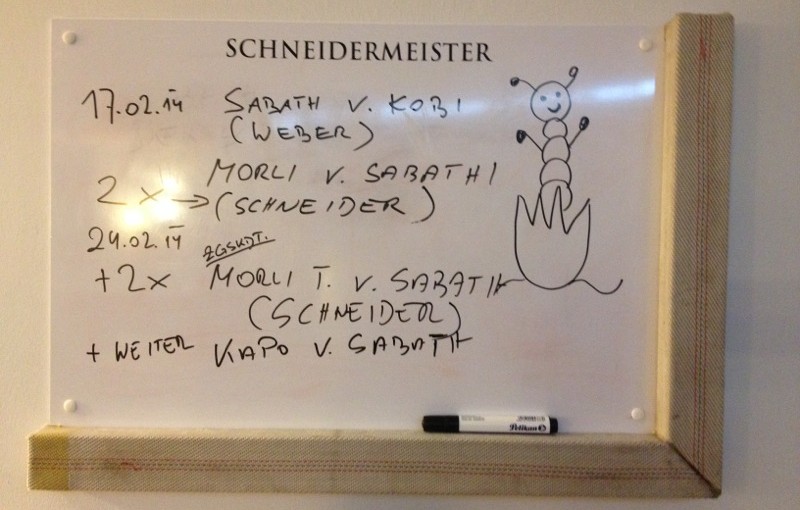 SCHNEIDERMEISTER
17.02.14 SABATH V. KOBI
(WEBER)
MORLI V. SABATH
2 x → (SCHNEIDER)
24.02.14
ZGSKDT.
+2x MORLI T. V. SABATH
(SCHNEIDER)
+ WEITER KAPO V. SABATH
Pelikan